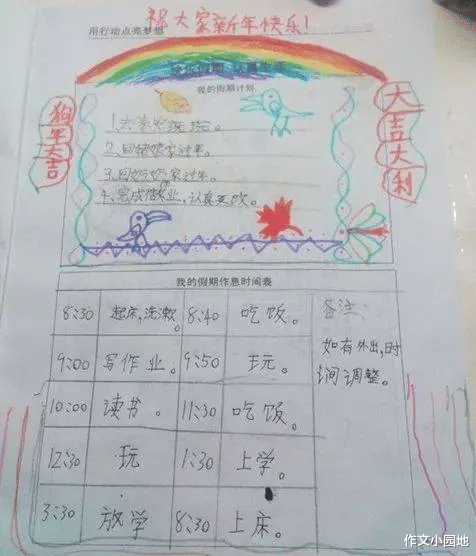 祝大家新年快乐!
用行动点亮梦想
我的假期计划
狗年大吉
大吉大利
1、去
2、回姥姥家过年。
3、回奶奶家过年。
4、完成作业,认真
我的假期作息时间表
8:30 起床,洗漱。 8:40 吃饭。 备注:
9:00 写作业。 9:50 玩。 如有外出,时
间调整。
10:00 读书。 11:30 吃饭。
12:30 玩 1:30 上学。
3:30 放学 8:30 上床。
作文小园地